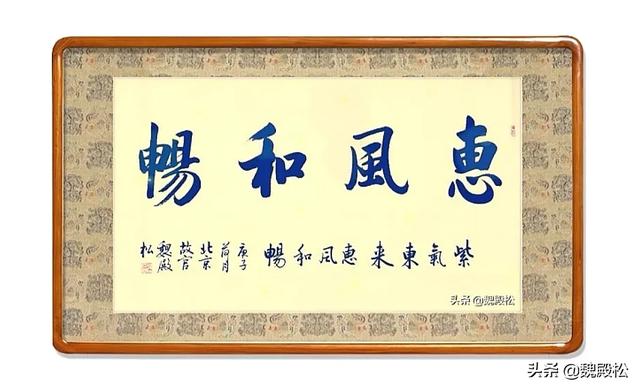 惠風和暢
紫氣東来惠風和暢
庚子
荷月
北京
故宫
魏殿
松
头条 @魏殿松
头条 @魏殿松